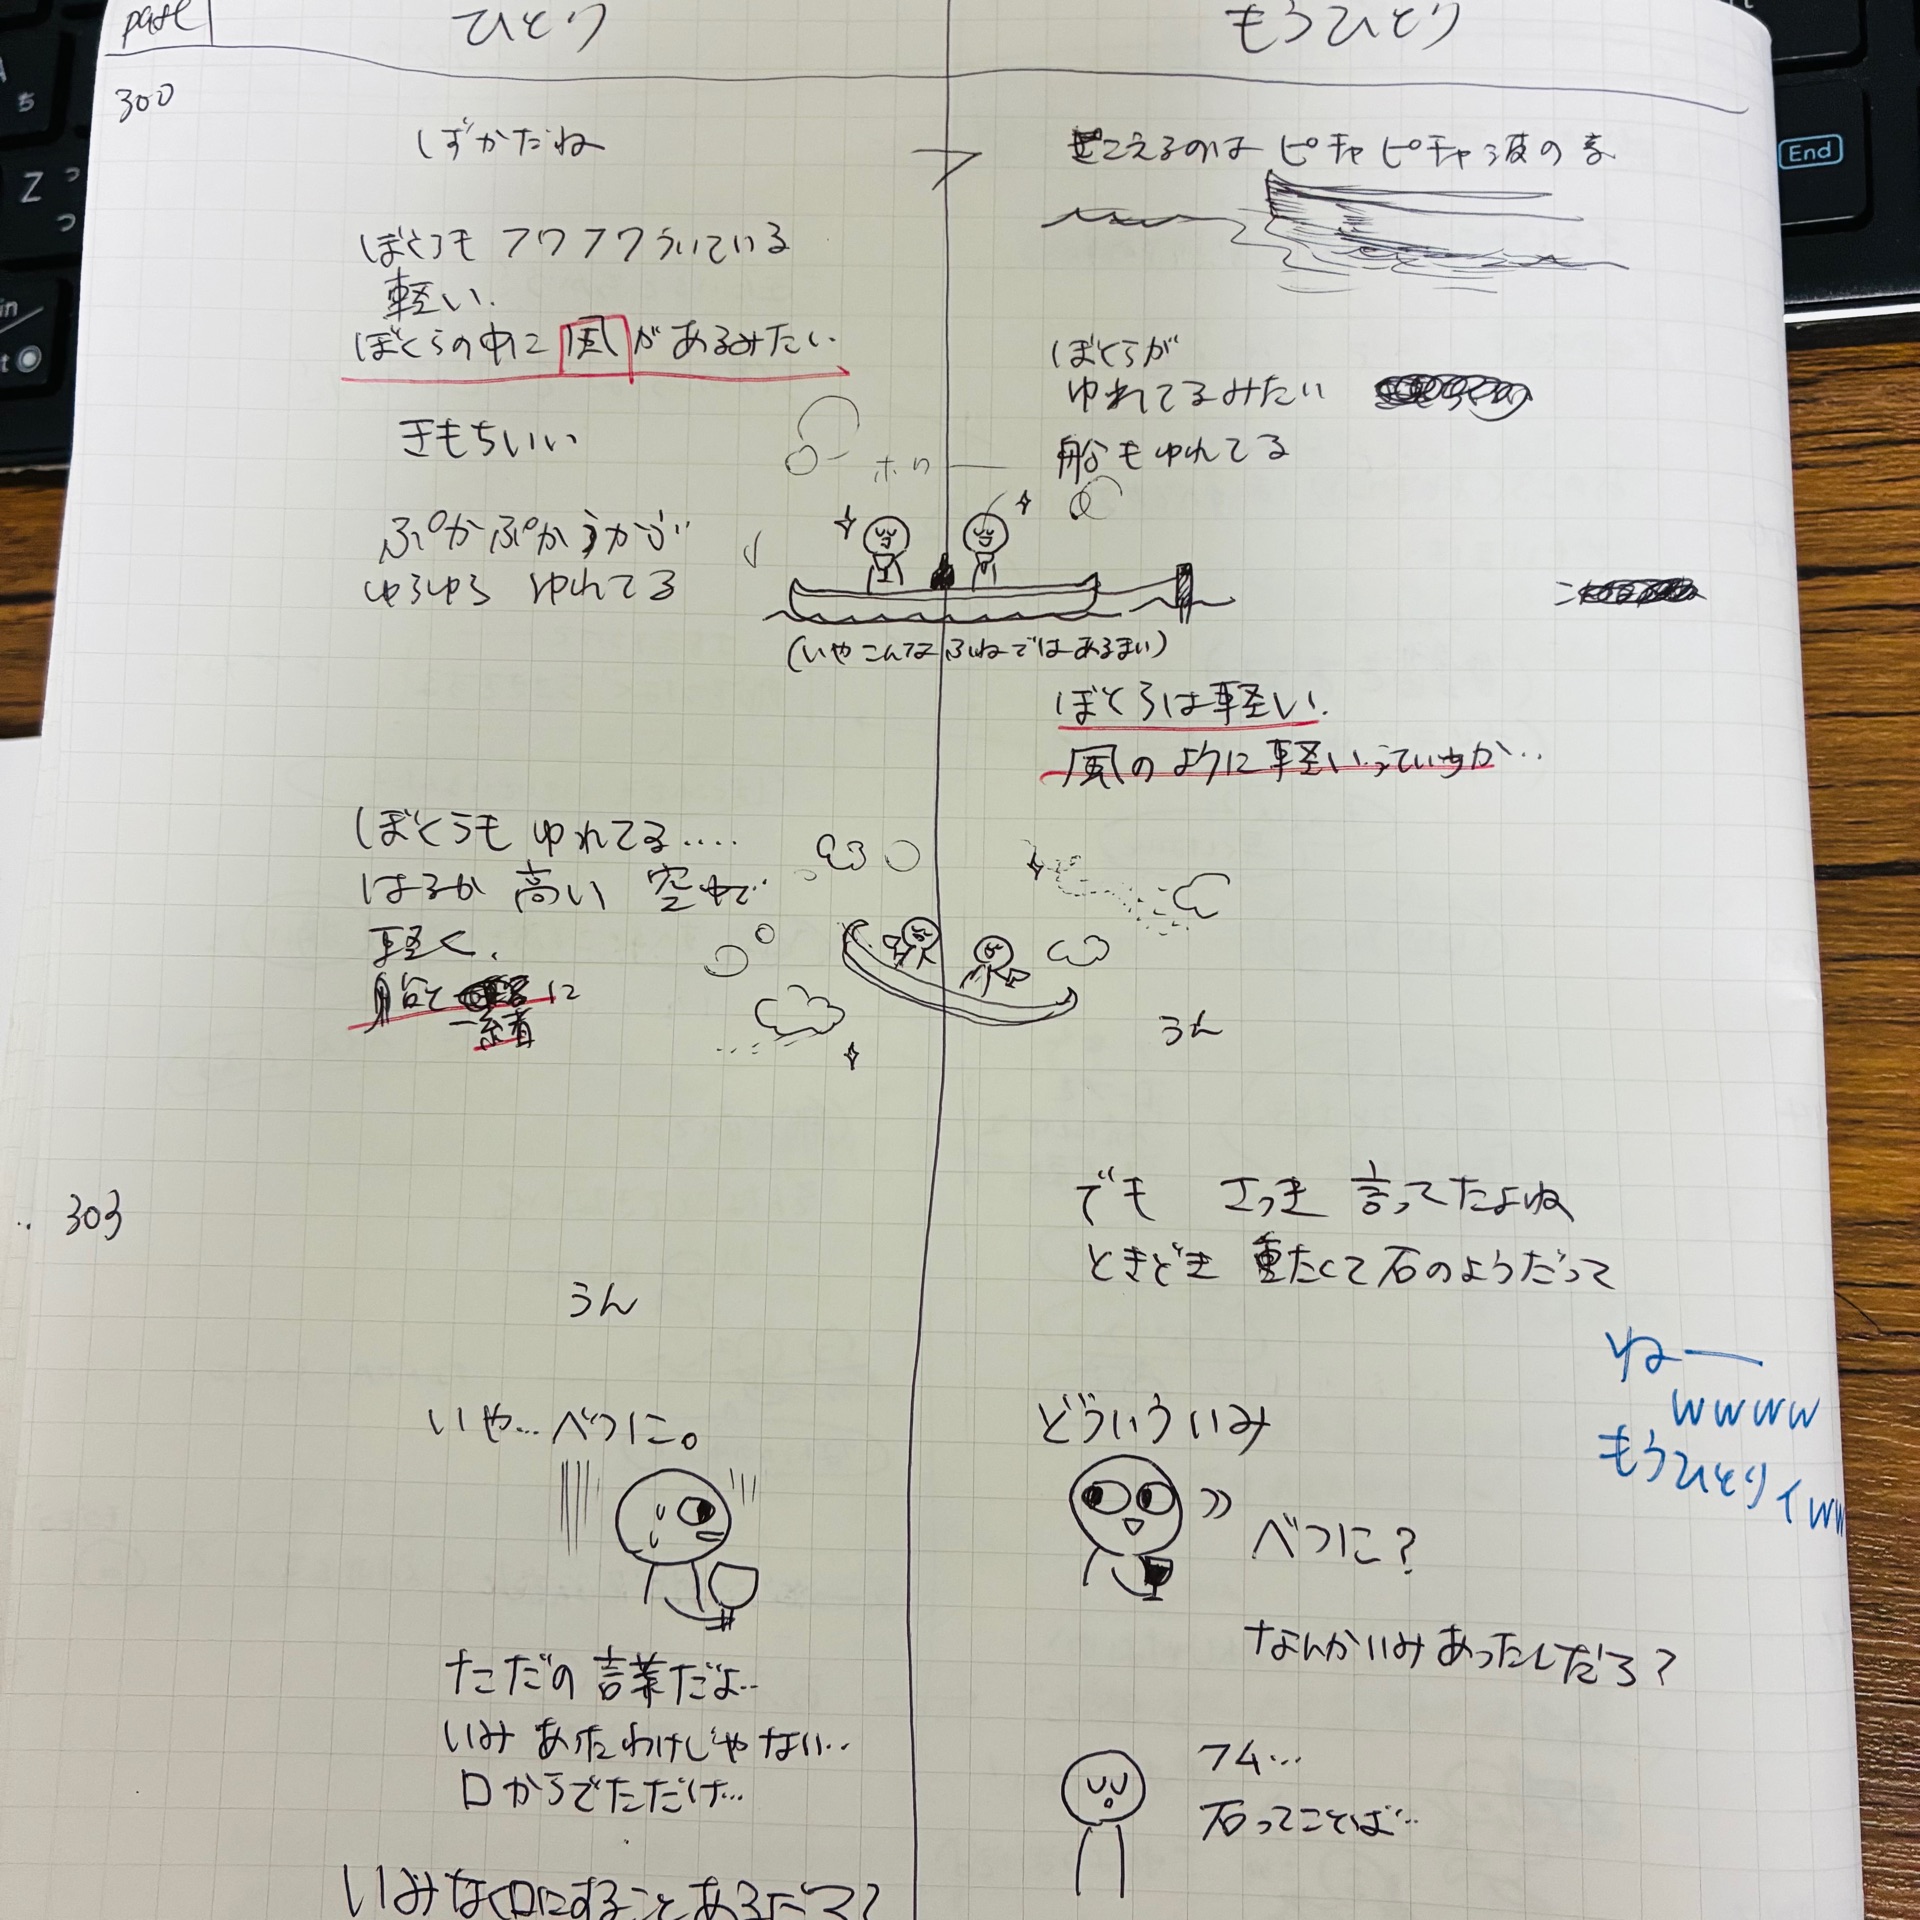 page
ひとり
もうひとり
300
しずかだね
きこえるのは ピチャピチャ波の音
ぼくらも フワフワういている
軽い.
ぼくらの中に風があるみたい.
きもちいい
ぼくらが
ゆれてるみたい
船もゆれてる
ホワ
ぷかぷかうかぶ
ゆらゆら ゆれてる
(いやこんなふねではあるまい)
ぼくらは軽い.
風のように軽いっていうか…
ぼくらも ゆれてる....
はるか 高い 空で
軽く.
船と に
一緒
うん
303
でも さっき 言ってたよね
ときどき 重たくて石のようだって
うん
ねー
wwww
もうひとりィww
いや...べつに。
どういういみ
べつに?
なんかいみあったんだろ?
ただの言葉だよ..
いみ あったわけじゃない..
口からでただけ...
フム...
石ってことば..
いみなく口にすることあるだろ?
End
Z
っ
つ
ち